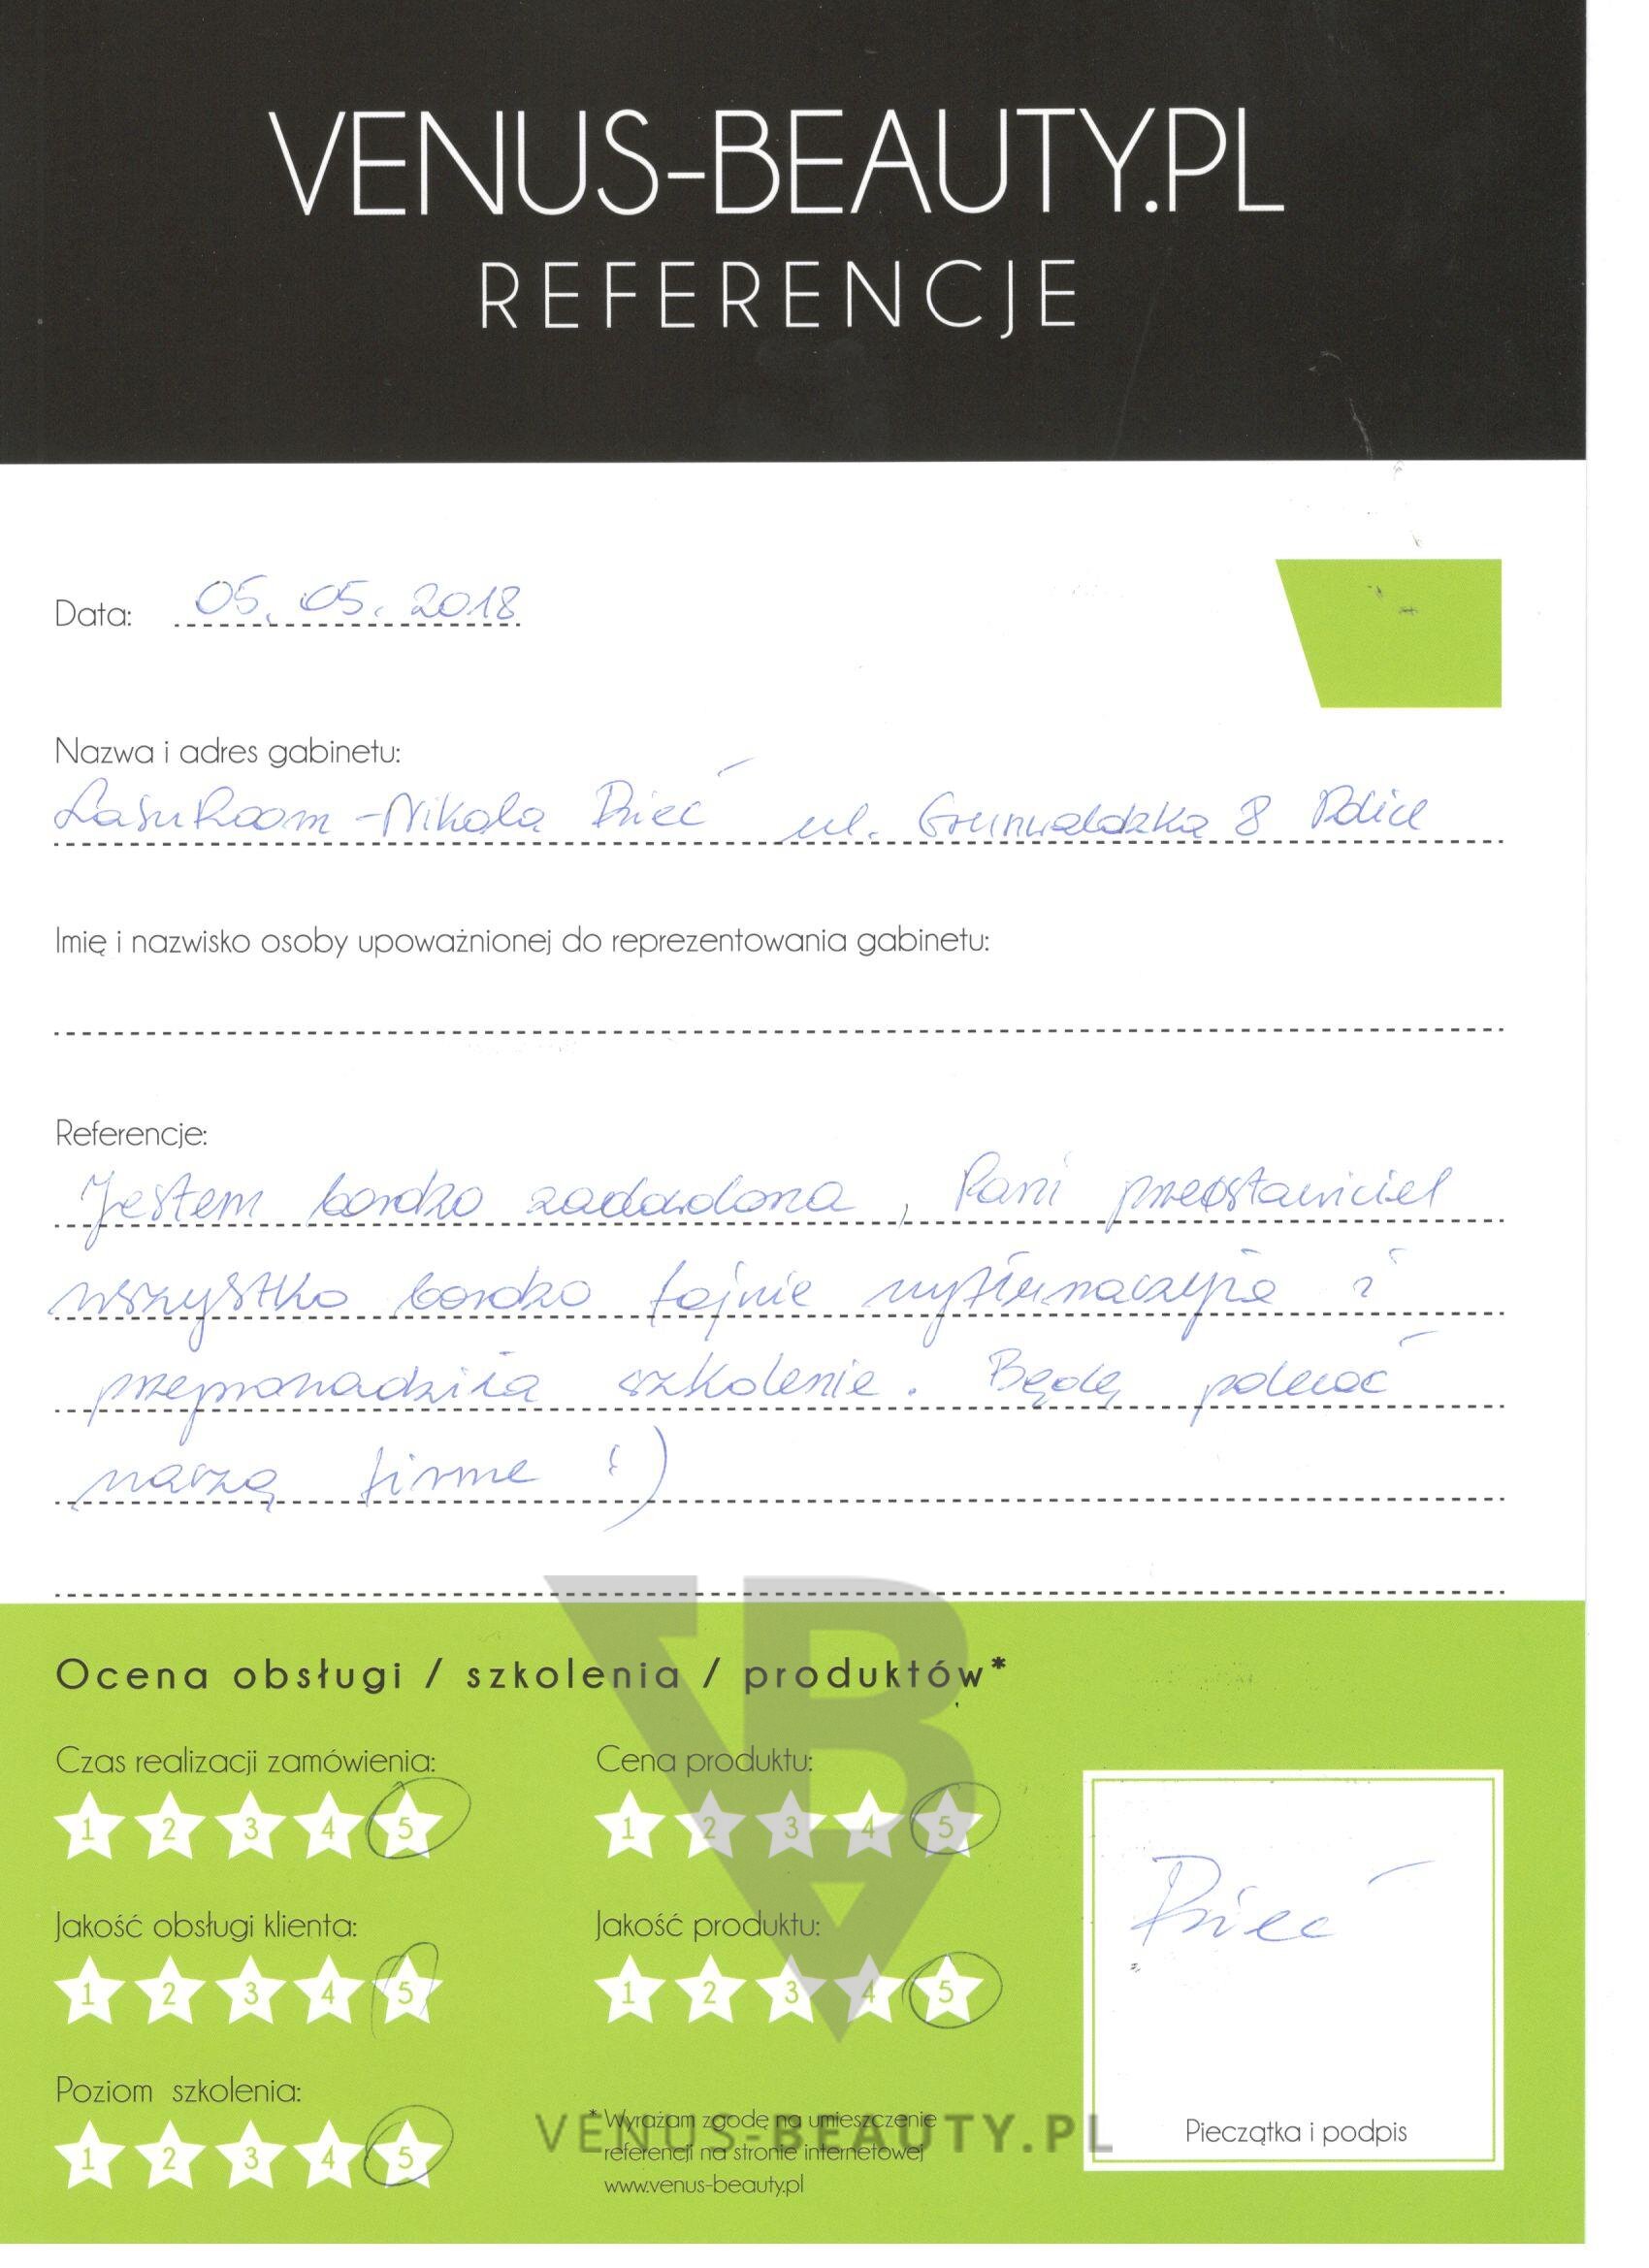 VENUS-BEAUTY.PL
REFERENCJE
Data: 05.05.2018
Nazwa i adres gabinetu:
-Nikola ul. Grunwaldzka 8 Police
Imię i nazwisko osoby upoważnionej do reprezentowania gabinetu:
Referencje:
Jestem bardzo zadowolona, Pani przedstawiciel
wszystko bardzo fajnie wytłumaczyła i
przeprowadziła szkolenie. Będę polecać
naszą firmę :)
Ocena obsługi / szkolenia / produktów*
Czas realizacji zamówienia: Cena produktu:
1 2 3 4 5 1 2 3 4 5
Jakość obsługi klienta: Jakość produktu:
1 2 3 4 5 1 2 3 4 5
Poziom szkolenia:
1 2 3 4 5
* Wyrażam zgodę na umieszczenie
referencji na stronie internetowej
www.venus-beauty.pl
Pieczątka i podpis
VENUS-BEAUTY.PL